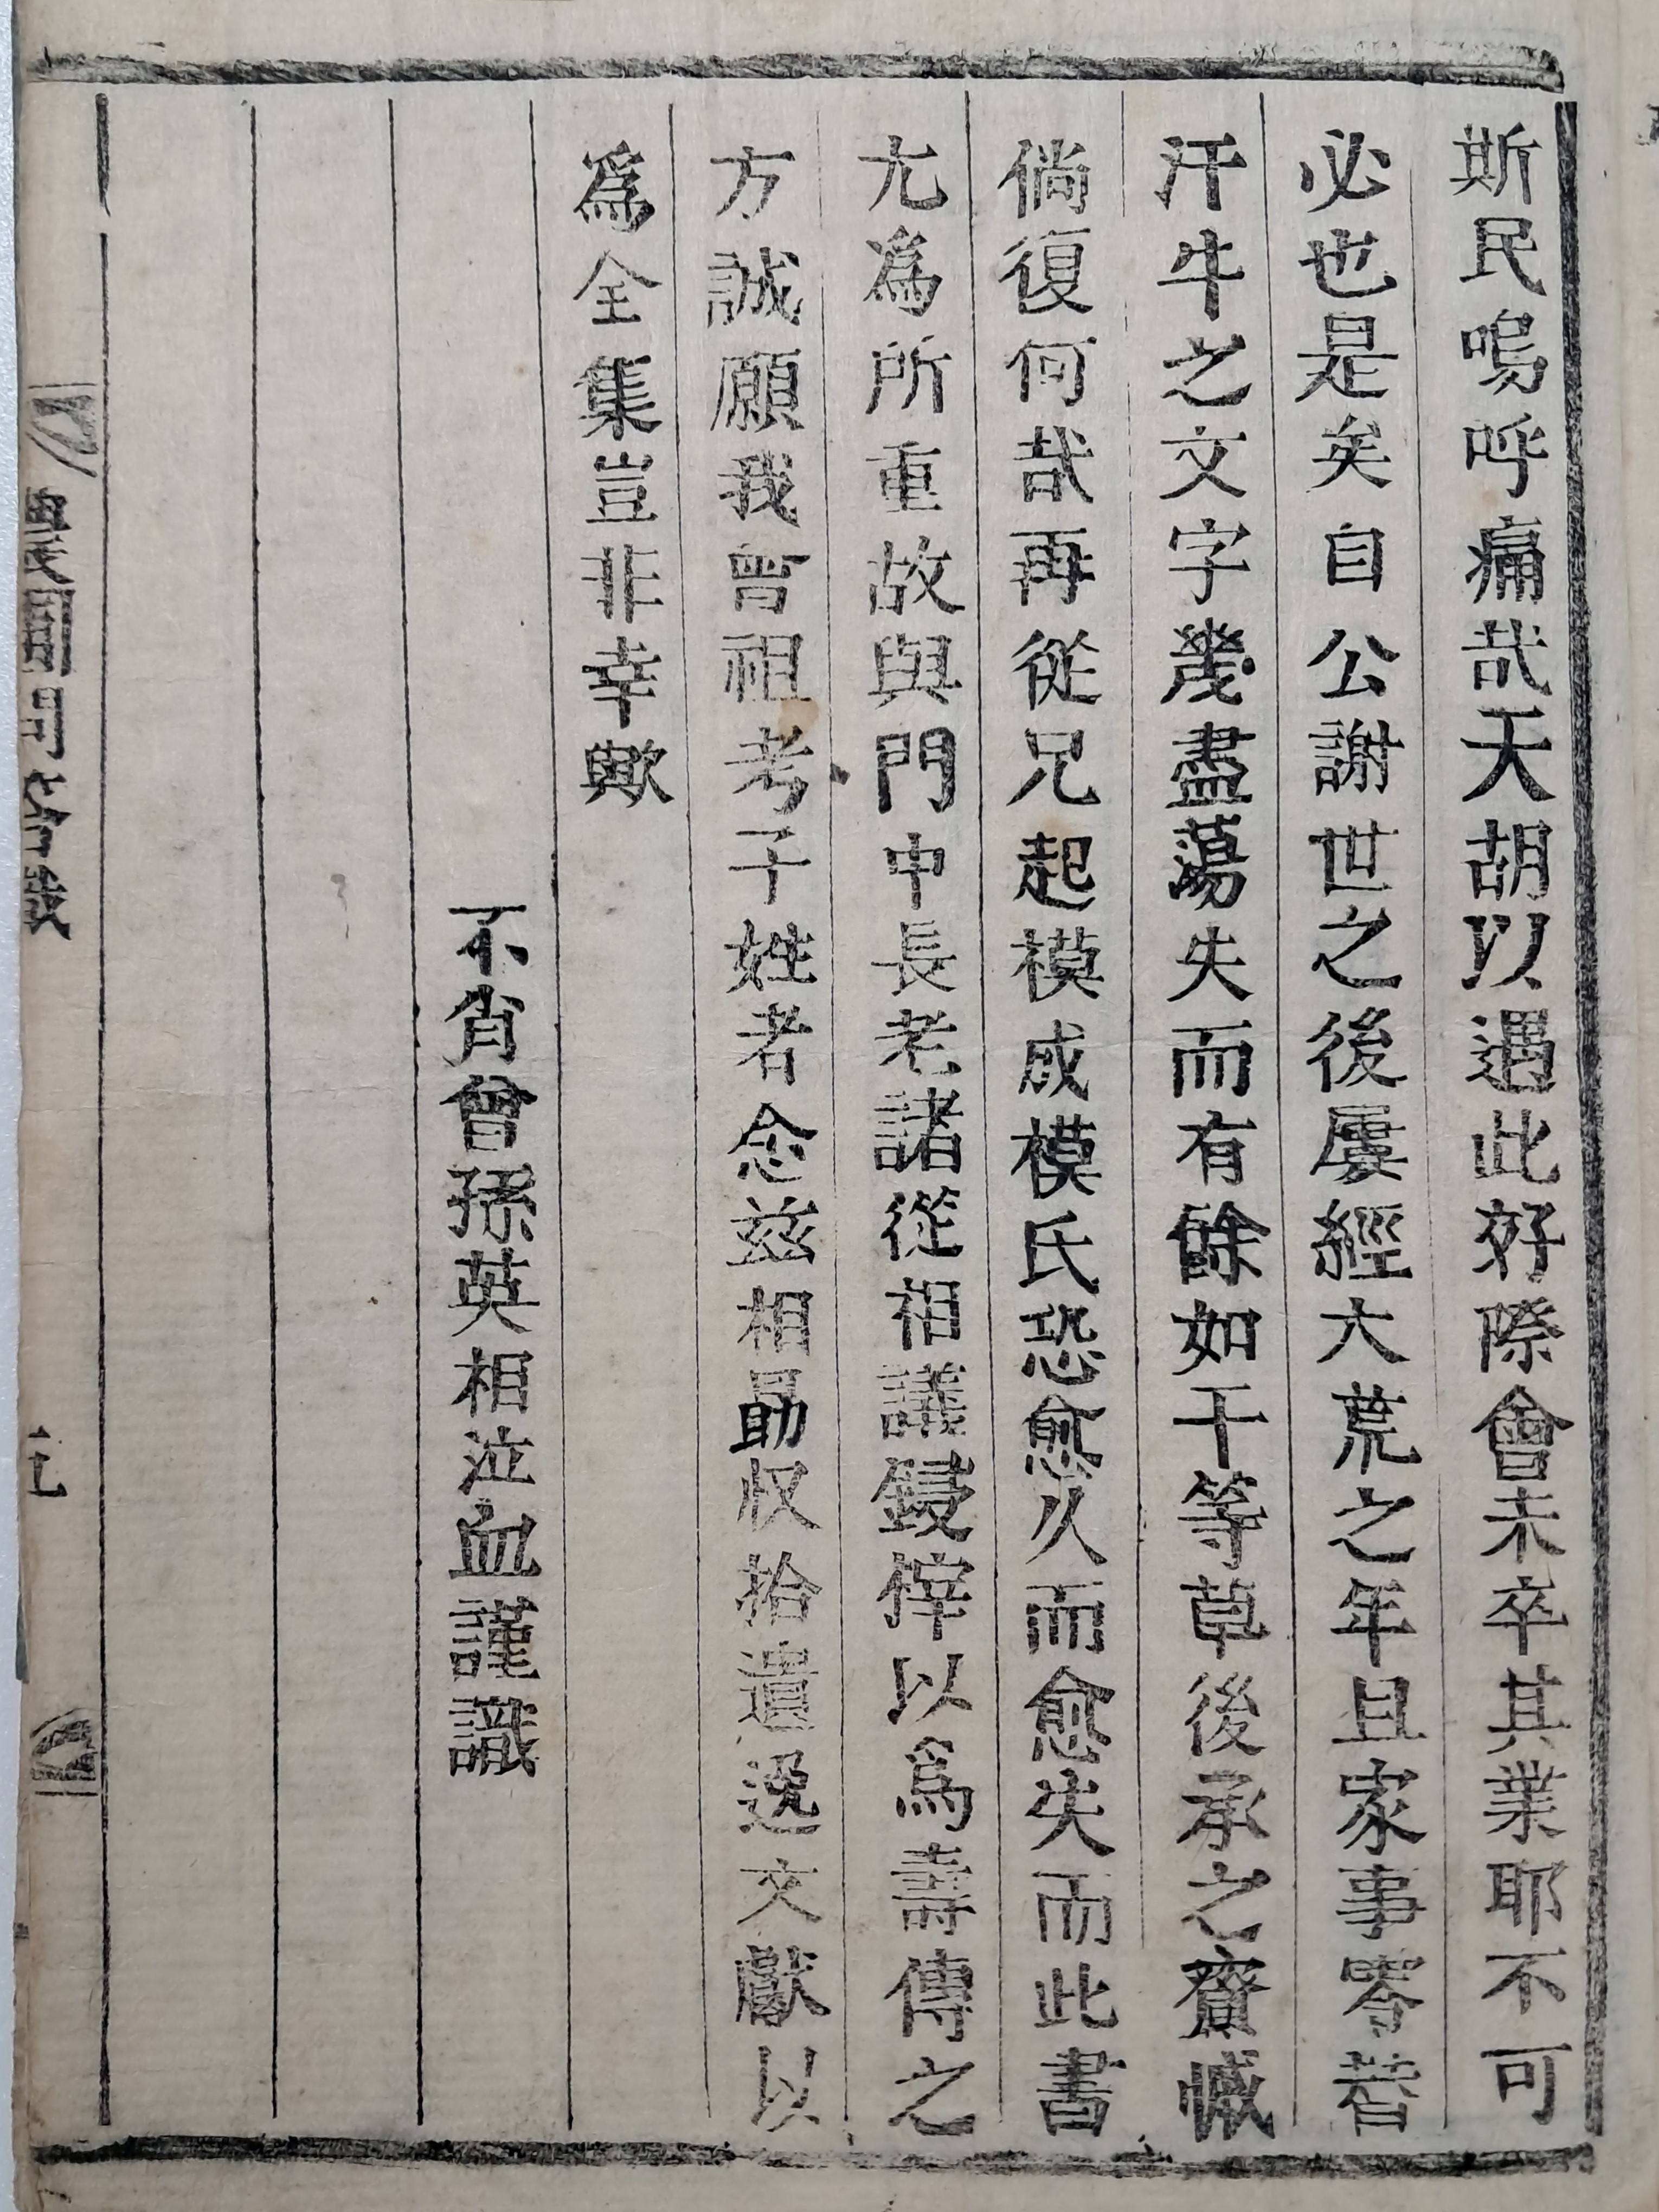 斯民嗚呼痛哉天胡以遇此好際會未卒其業耶不可
必也是矣自公謝世之後屢經大荒之年且家事零替
汗牛之文字幾盡蕩失而有餘如干等草後承之齎慽
倘復何哉再從兄起模成模氏恐愈久而愈失而此書
尤爲所重故與門中長老諸從相議鋟梓以爲壽傳之
方誠願我曾祖考子姓者念玆相勗收拾遺逸文獻以
爲全集豈非幸歟
不肖曾孫英相泣血謹識